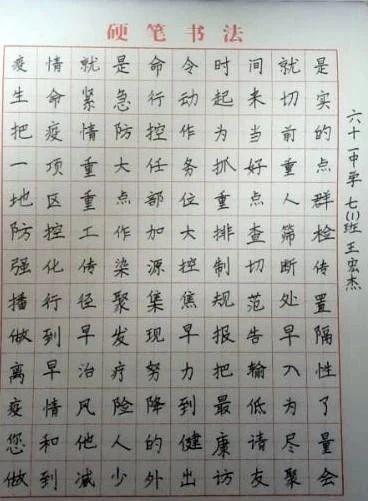 硬笔书法
疫情就是命令时间就是
生命紧急行动起来切实
把疫情防控作为当前的
一项重大任务抓好重点
地区重点部位重点人群
防控工作加大排查筛检
强化传染源控制切断传
播行径聚集焦规范处置
做到早发现早报告早隔
离早治疗努力把输入性
疫情风险降到最低为了
您和他人的健康请尽量
做到减少外出访友聚会
六十一中学 七(1)班 王宏杰